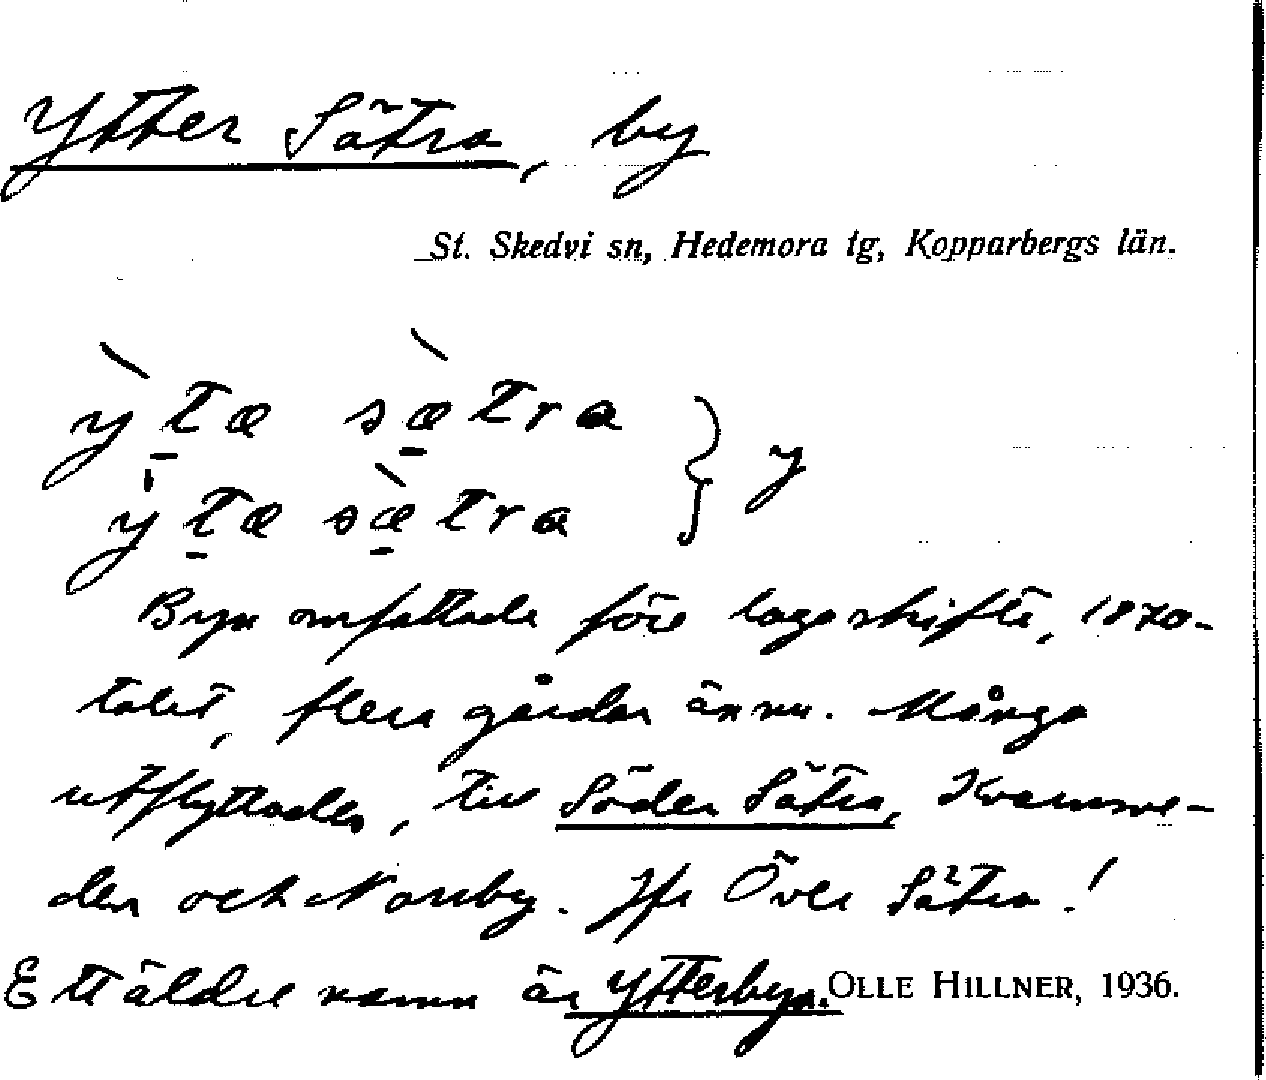 Ytter Sätra, by
St. Skedvi sn, Hedemora tg, Kopparbergs län.
ỳtæ sæ̀tra } y
y̍tæ sæ̀tra
Byn omfattade före lagaskifte, 1870-
talet, flera gårdar ännu. Många
utflyttades, till Söder Sätra,
den och Norrby. Jfr Över Sätra!
Ett äldre namn är Ytterbyn. OLLE HILLNER, 1936.